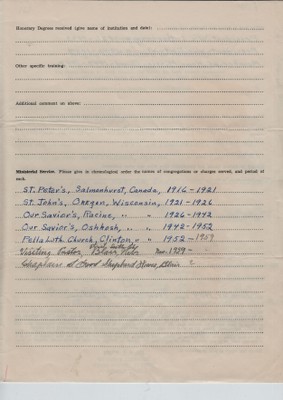 Honorary Degrees received (give name of Institution and date):
Other specific training:
Additional comment on above:
Ministerial Service. Please give in chronological order the names of congregations or charges served, and period of each.
St. Peter's, Salmonhurst, Canada, 1916-1921
St. John's, Oregon, Wisconsin, 1921-1926
Our Savior's, Racine, " " 1926-1942
Our Savior's, Oshkosh, " " 1942-1952
Pella Luth. Church, Clinton, " " 1952-1959
First Luth.
Visiting Pastor, Blair, Nebr. Nov. 1959-
Chaplain at Good Shepherd Home, Blair